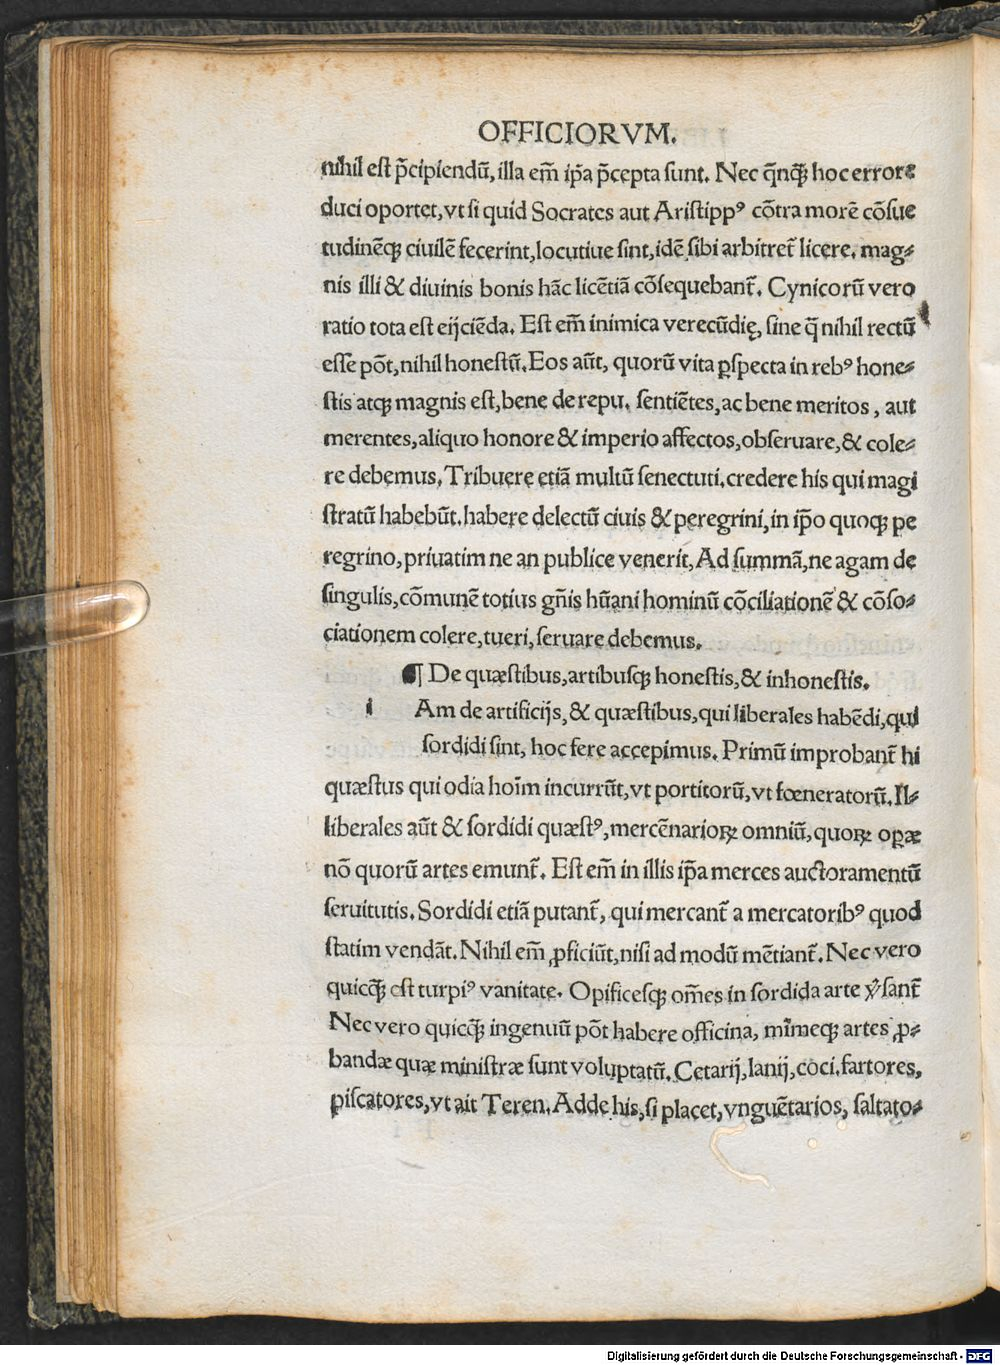 OFFICIORVM.
nihil est p̄cipiendū, illa em̄ ip̄a p̄cepta sunt. Nec q̄nqꝫ̄ hoc errore
duci oportet, vt si quid Socrates aut Aristippꝰ cōtra morē cōsue
tudinēqꝫ ciuilē fecerint, locutiue sint, idē sibi arbitret̄ licere. mag⸗
nis illi & diuinis bonis hāc licētiā cōsequebant̄. Cynicorū vero
ratio tota est eijciēda. Est em̄ inimica verecūdię, sine q̄ nihil rectū
esse pōt, nihil honestū. Eos aūt, quorū vita ꝑspecta in rebꝰ hone⸗
stis atqꝫ magnis est, bene de repu. sentiētes, ac bene meritos, aut
merentes, aliquo honore & imperio affectos, obseruare, & cole⸗
re debemus, Tribuere etiā multū senectuti. credere his qui magi
stratū habebūt. habere delectū ciuis & peregrini, in ip̄o quoqꝫ pe
regrino, priuatim ne an publice venerit, Ad summā, ne agam de
singulis, cōmunē totius gn̄is hūani hominū cōciliationē & cōso⸗
ciationem colere, tueri, seruare debemus.
¶ De quæstibus, artibusqꝫ honestis, & inhonestis.
i Am de artificijs, & quæstibus, qui liberales habēdi, qui
sordidi sint, hoc fere accepimus. Primū improbant̄ hi
quæstus qui odia hoīm incurrūt, vt portitorū, vt fœneratorū. Il⸗
liberales aūt & sordidi quæstꝰ, mercēnarioꝝ omniū, quoꝝ oꝑæ
nō quorū artes emunt̄. Est em̄ in illis ip̄a merces auctoramentū
seruitutis. Sordidi etiā putant̄, qui mercant̄ a mercatoribꝰ quod
statim vendāt. Nihil em̄ ꝓficiūt, nisi ad modū mētiant̄. Nec vero
quicqꝫ̄ est turpiꝰ vanitate. Opificesqꝫ om̄es in sordida arte v̓sant̄
Nec vero quicqꝫ̄ ingenuū pōt habere officina, mīmeqꝫ artes ꝓ⸗
bandæ quæ ministræ sunt voluptatū. Cetarij, lanij, coci. fartores,
piscatores, vt ait Teren. Adde his, si placet, vnguētarios, saltato⸗
Digitalisierung gefördert durch die Deutsche Forschungsgemeinschaft - DFG